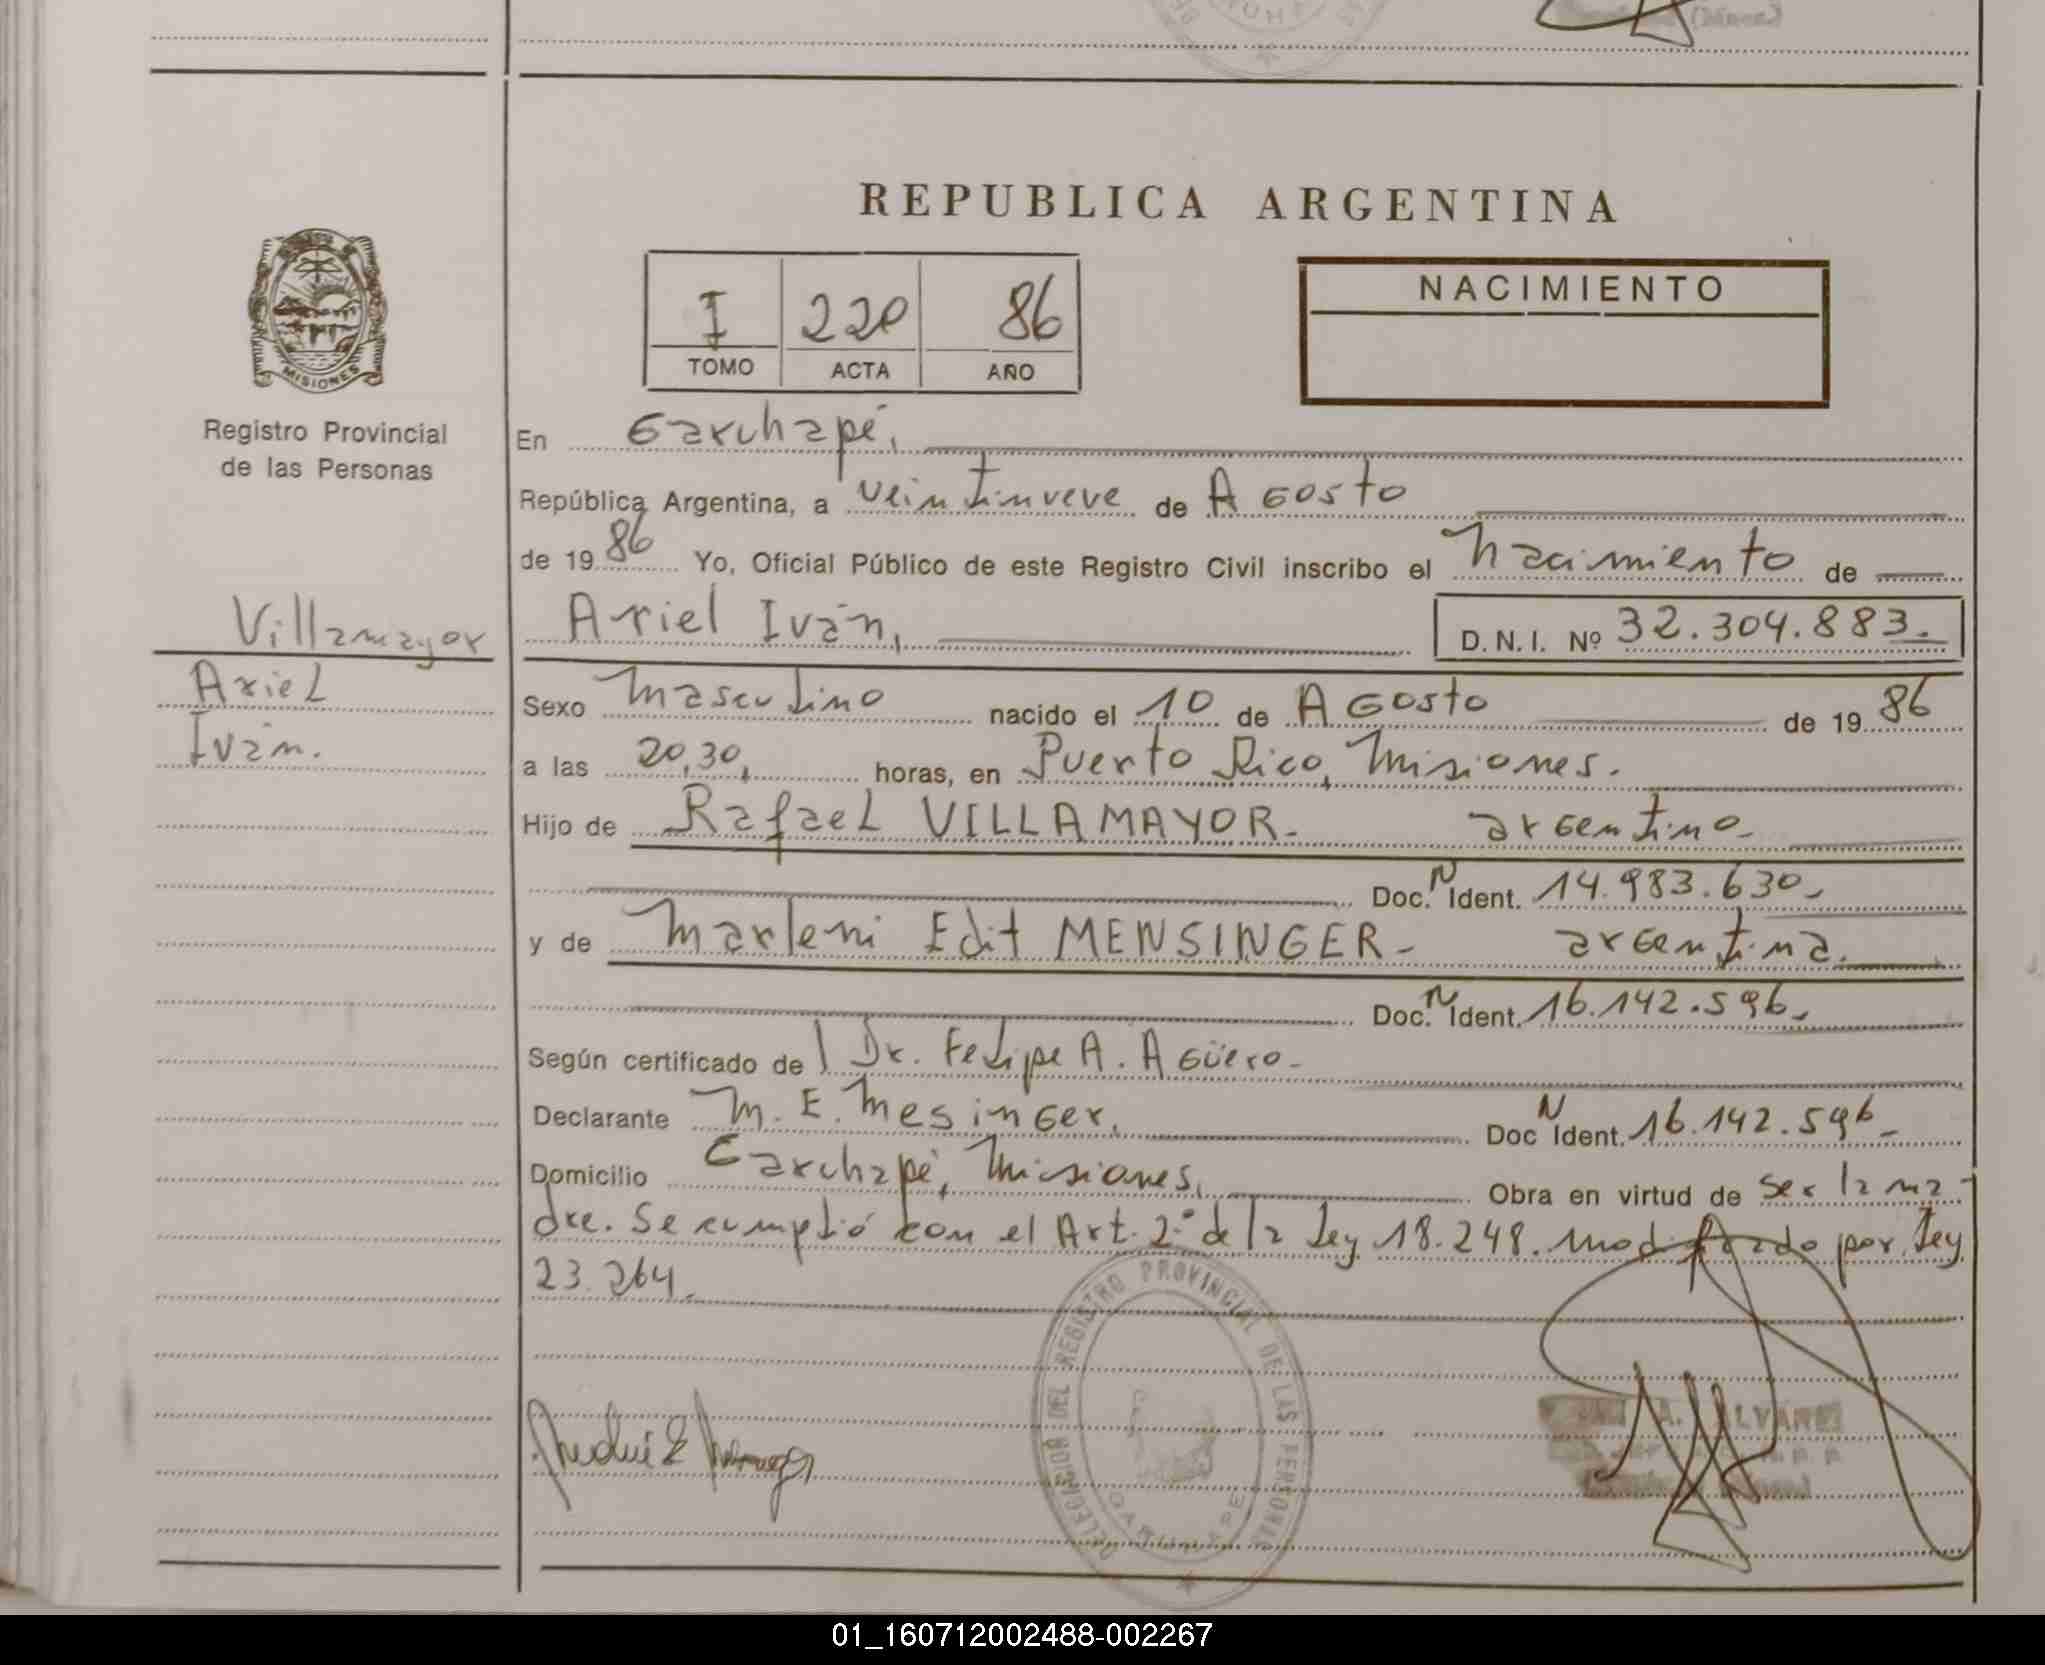 REPUBLICA ARGENTINA
MISIONES
Registro Provincial
de las Personas
I 220 86
TOMO ACTA AÑO
NACIMIENTO
En Garuhapé,
República Argentina, a veintinueve de Agosto
de 1986 Yo, Oficial Público de este Registro Civil inscribo el nacimiento de
Villamayor
Ariel
Iván.
Ariel Iván, D.N.I. Nº 32.304.883.
Sexo masculino nacido el 10 de Agosto de 1986
a las 20,30, horas, en Puerto Rico, Misiones.
Hijo de Rafael VILLAMAYOR- argentino-
Doc. N Ident. 14.983.630,-
y de Marleni Edit MENSINGER- argentina.
Doc. N Ident. 16.142.596,-
Según certificado de Dr. Felipe A. Agüero-
Declarante M. E. Mesinger, Doc N Ident. 16.142.596-
Domicilio Garuhapé, Misiones, Obra en virtud de ser la ma-
dre. Se cumplió con el Art. 2º de la Ley 18.248. modificado por Ley
23.264.
DELEGACION DEL REGISTRO PROVINCIAL DE LAS PERSONAS
GARUHAPE
A. ALVAREZ
01_160712002488-002267